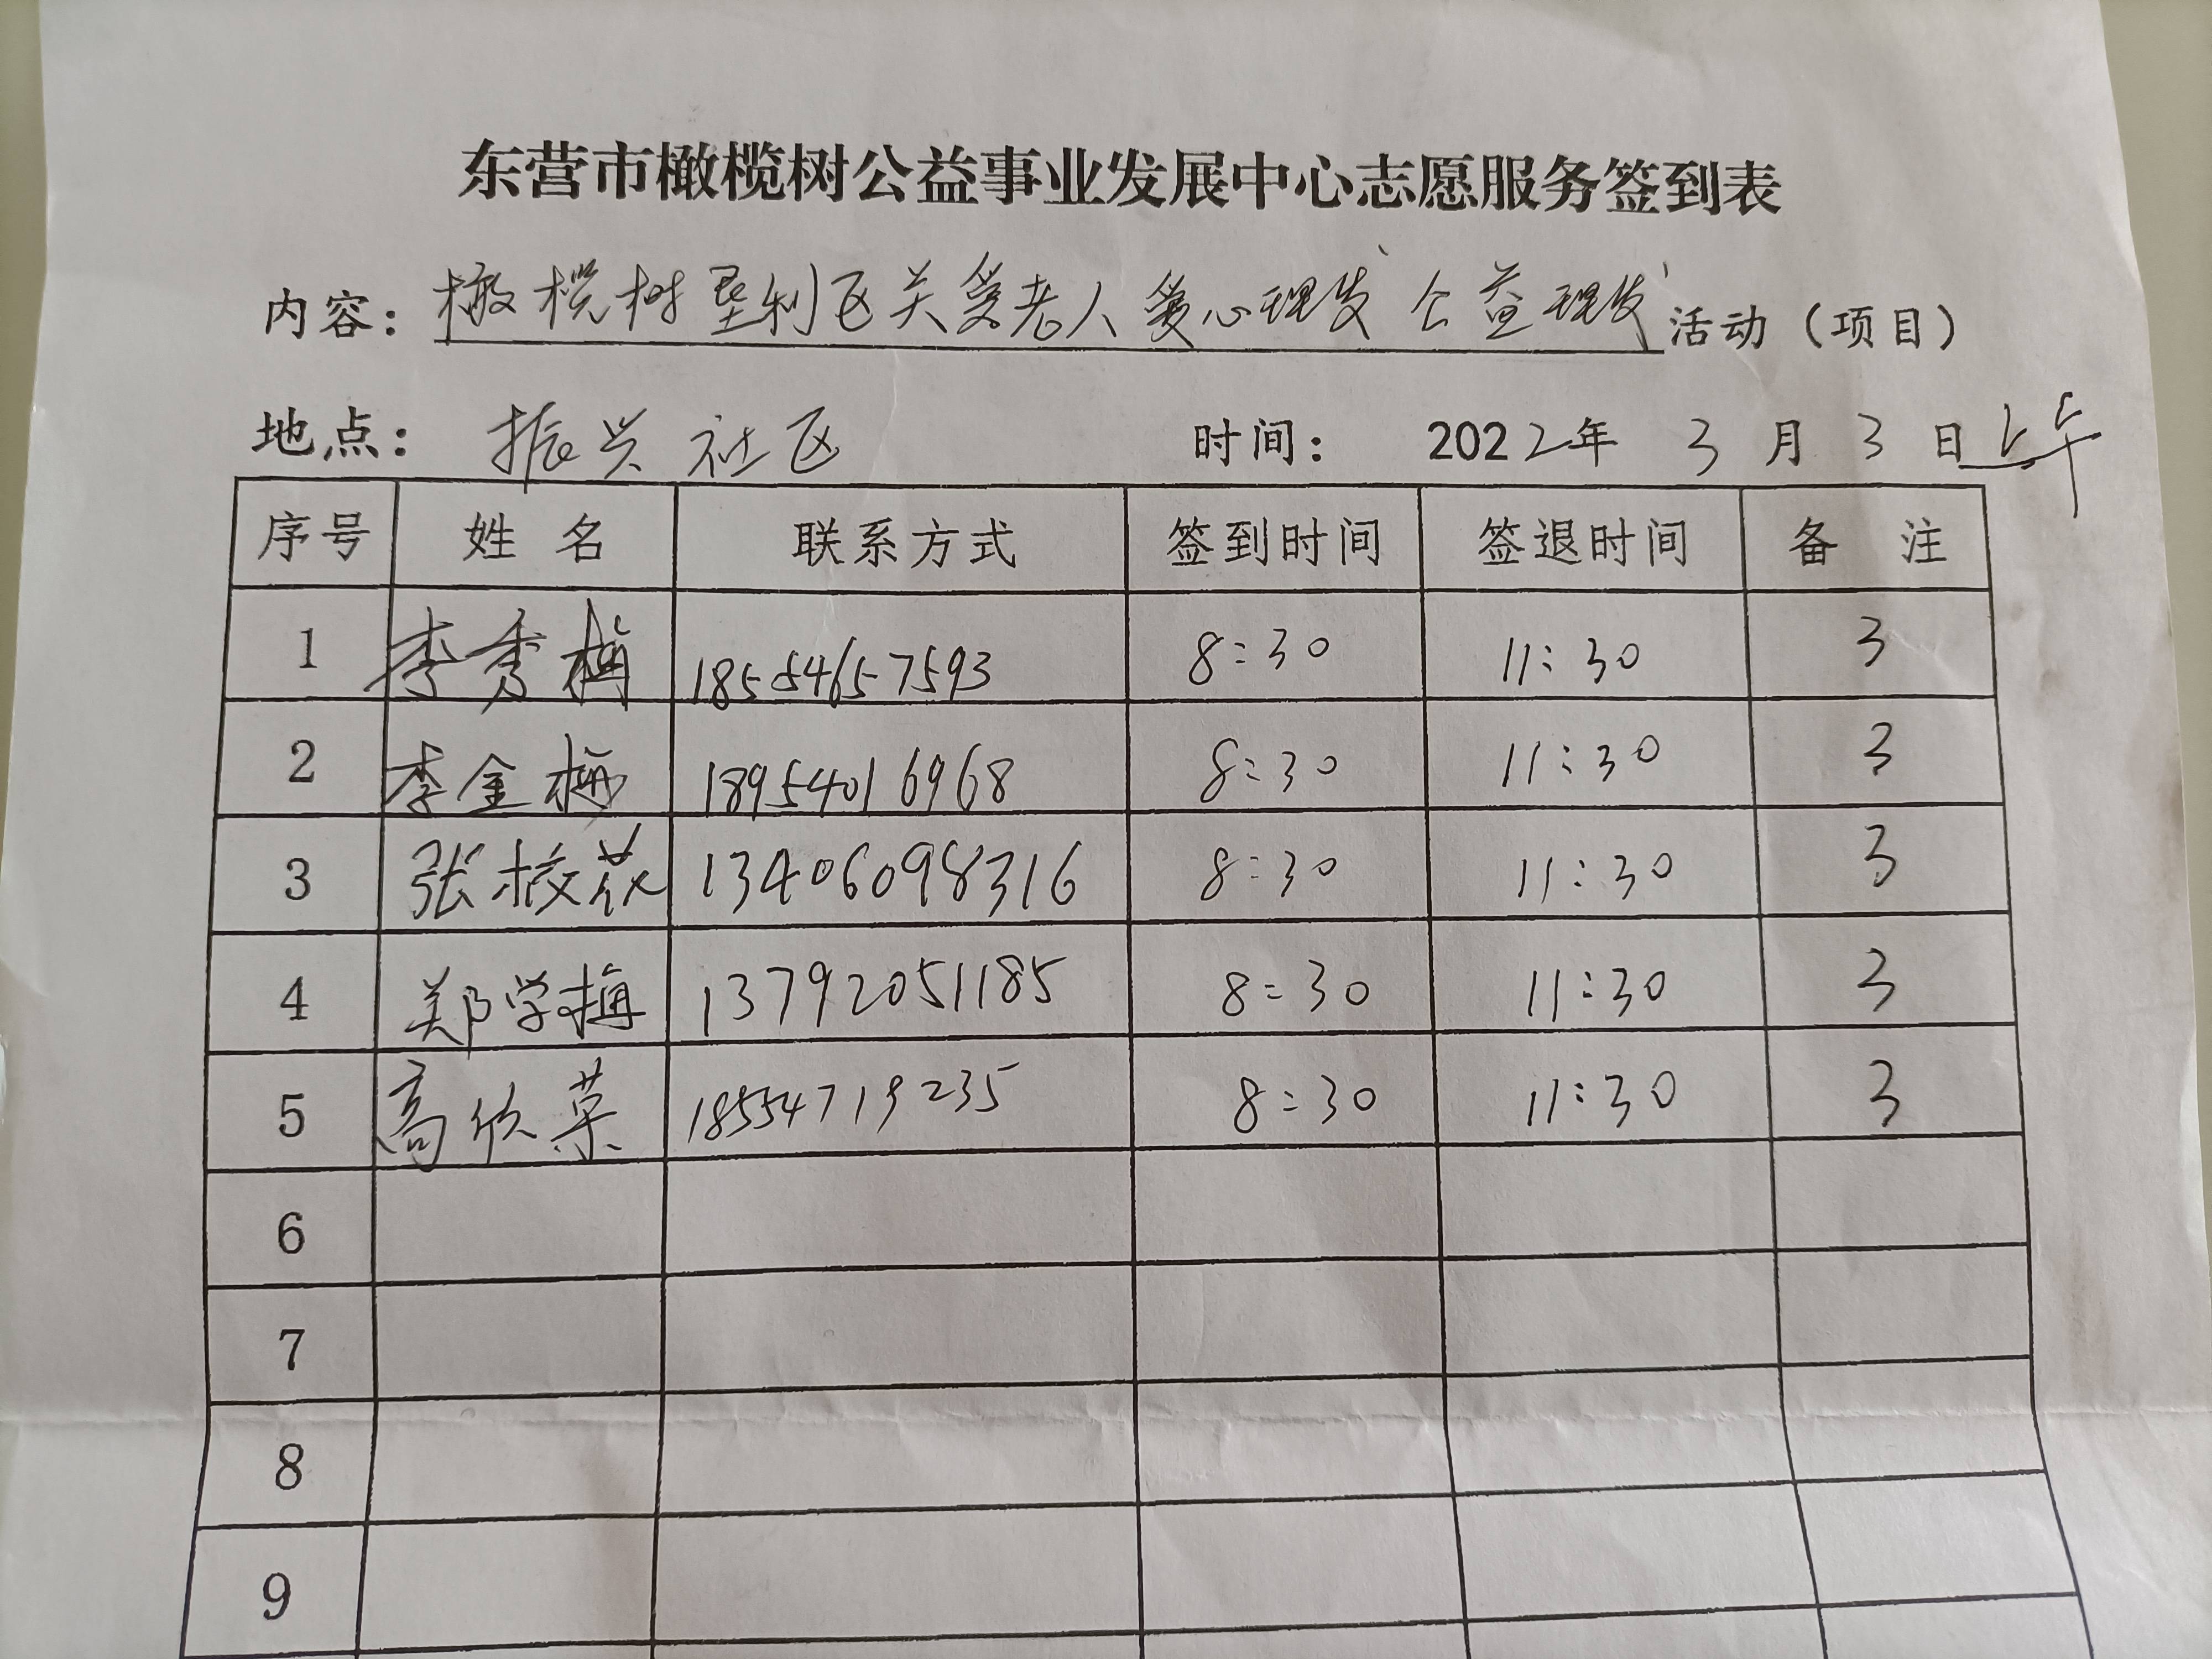 东营市橄榄树公益事业发展中心志愿服务签到表
内容: 橄榄树垦利区关爱老人爱心理发公益理发活动（项目）
地点: 振兴社区 时间: 2022年 3月 3日上午
序号 姓名 联系方式 签到时间 签退时间 备注
1 李秀梅 18554657593 8:30 11:30 3
2 李金梅 18954016968 8:30 11:30 3
3 张校花 13406098316 8:30 11:30 3
4 郑学梅 13792051185 8:30 11:30 3
5 高欣荣 18554719235 8:30 11:30 3
6
7
8
9